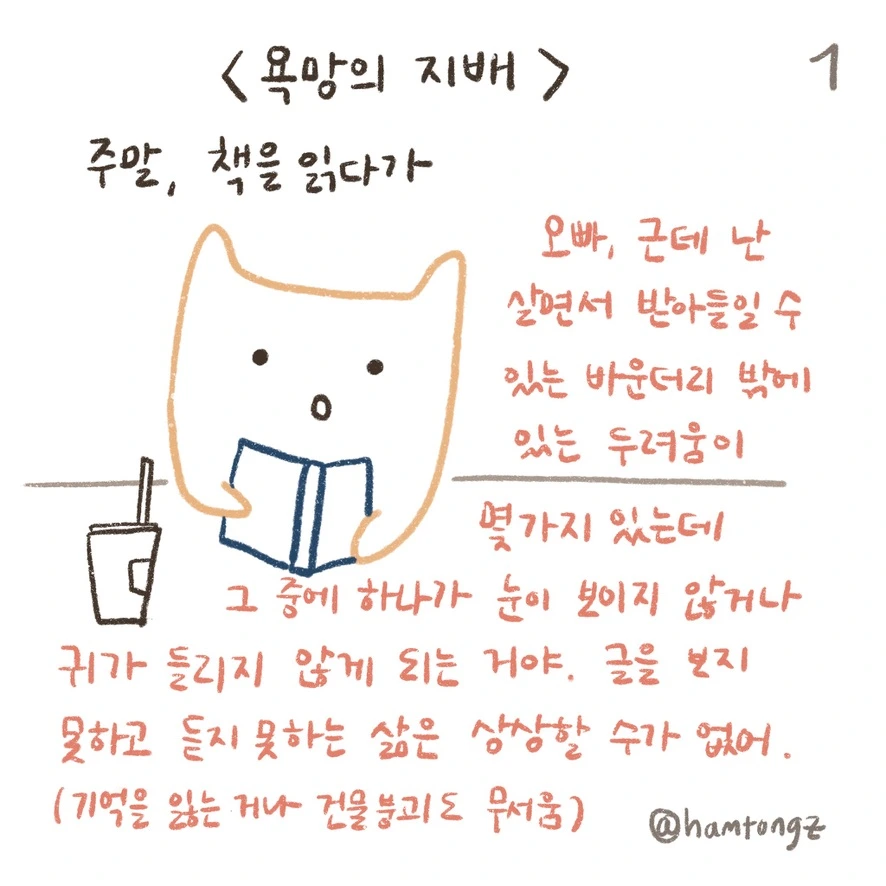 <욕망의 지배>
1
주말, 책을 읽다가
오빠, 근데 난
살면서 받아들일 수
있는 바운더리 밖에
있는 두려움이
몇가지 있는데
그 중에 하나가 눈이 보이지 않거나
귀가 들리지 않게 되는 거야. 글을 보지
못하고 듣지 못하는 삶은 상상할 수가 없어.
(기억을 잃는 거나 건물붕괴도 무서움)
@hamtongz